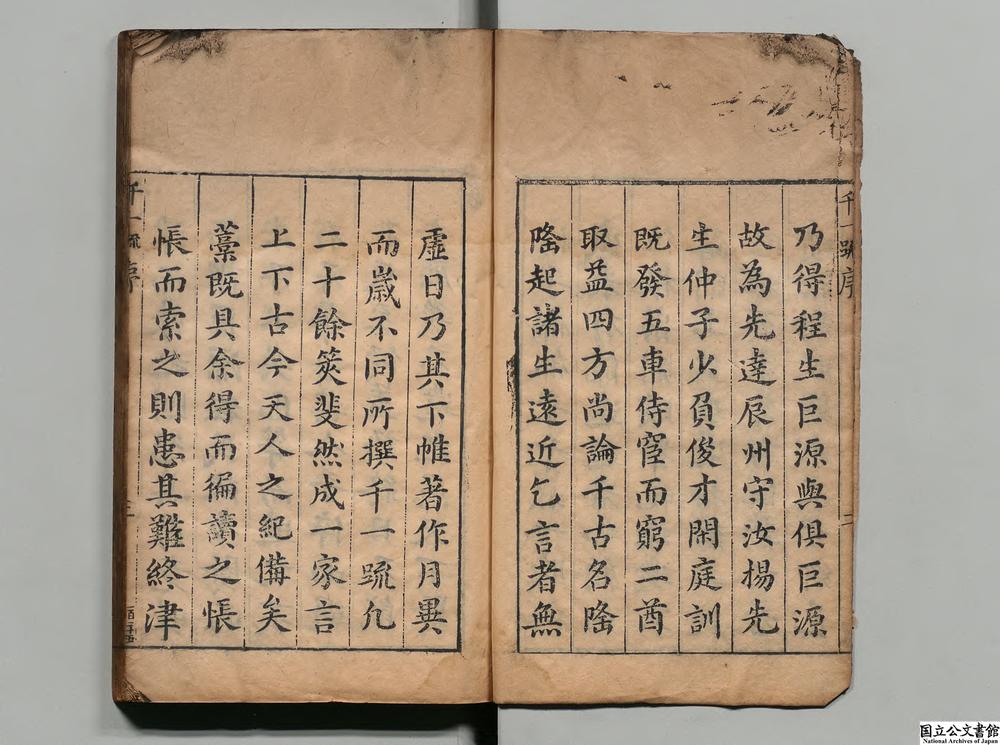 乃得程生巨源與俱巨源
故為先達辰州守汝揚先
生仲子少負俊才閑庭訓
既發五車侍窒而窮二酋
取益四方尚論千古名隆
隆起諸生遠近乞言者無
千一疏序
二
虛日乃其下帷著作月異
而歲不同所撰千一疏凡
二十餘筴斐然成一家言
上下古今天人之紀備矣
藁既具余得而徧讀之悵
悵而索之則患其難終津
千一疏序
三
国立公文書館
National Archives of Japan